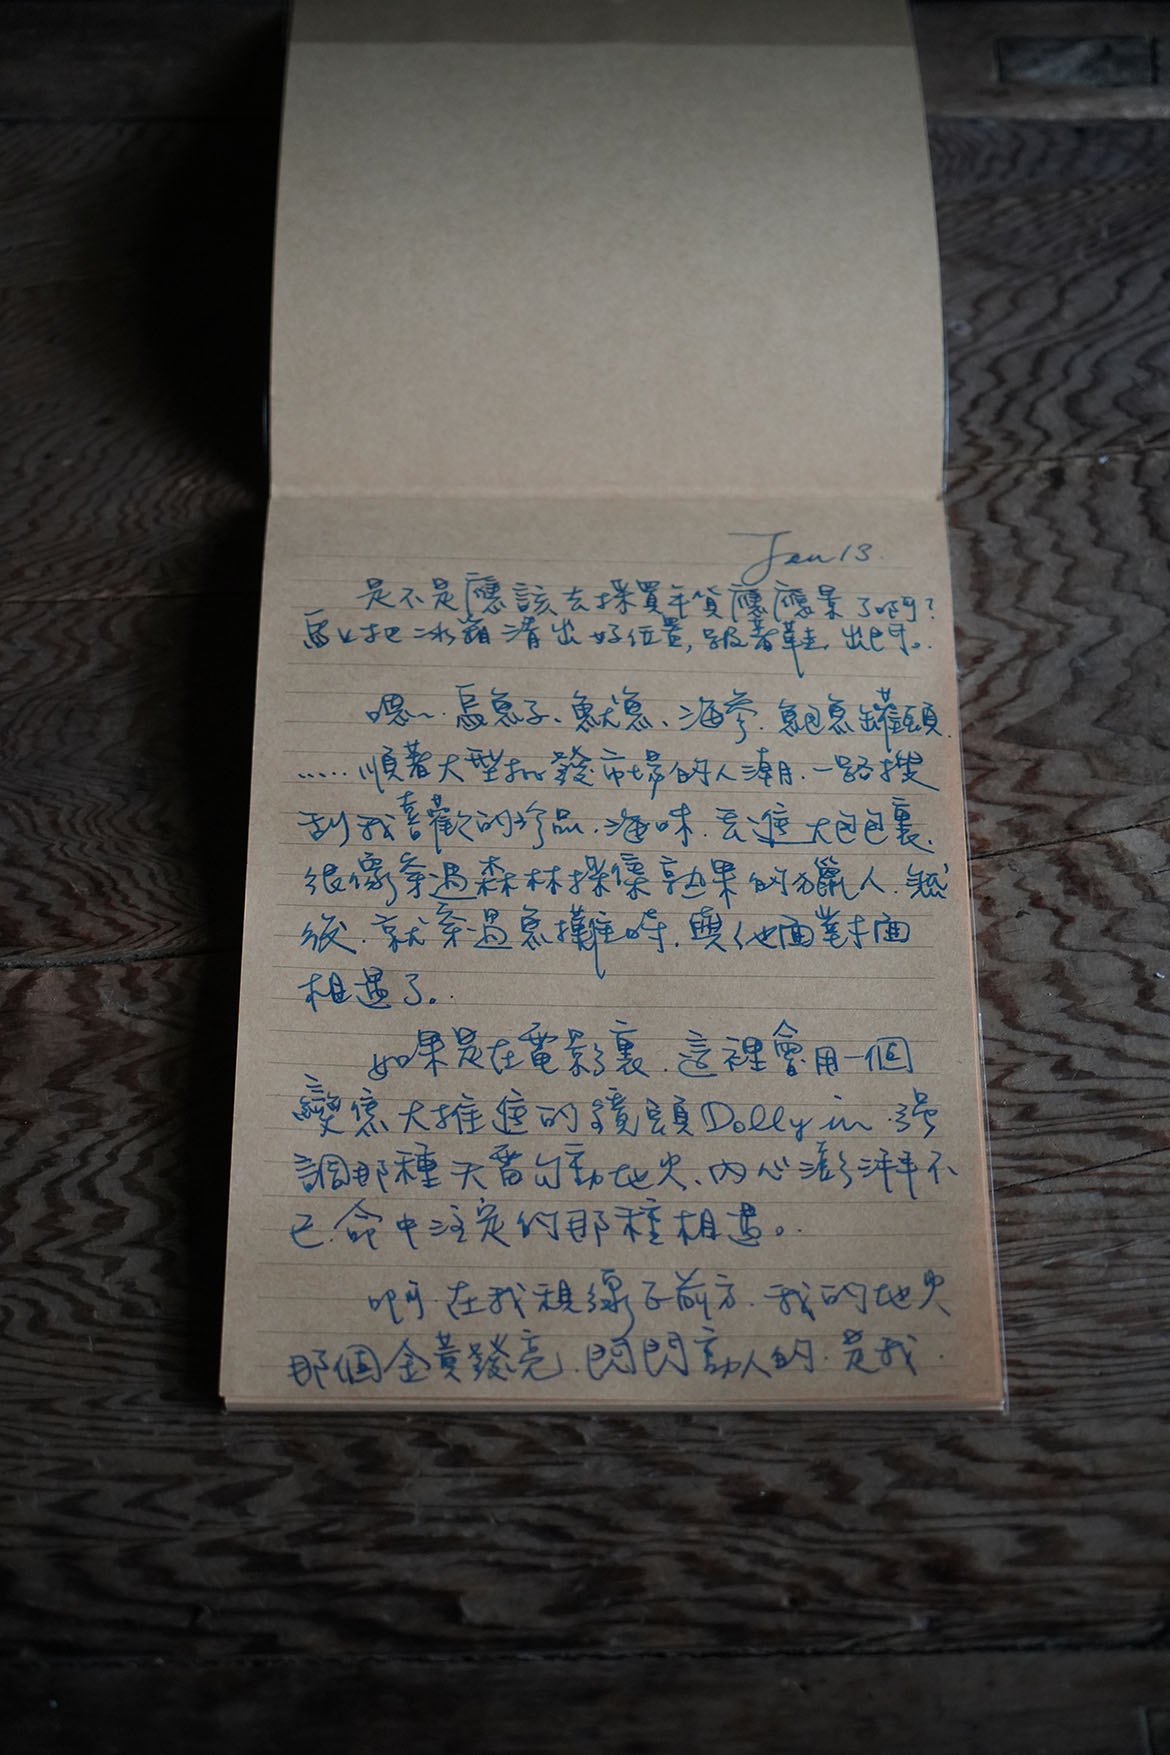 Jan 13.
是不是應該去採買年貨應應景了啊?
馬上把冰箱清出好位置,趿著鞋,出門。
嗯~烏魚子、魷魚、海參、鮑魚罐頭、
……順著大型批發市場的人潮、一路搜
刮我喜歡的珍品、海味、丟進大包包裏、
很像穿過森林採集熟果的獵人、然
後、就穿過魚攤時、與他面對面
相遇了。
如果是在電影裏、這裡會用一個
變焦大推進的鏡頭Dolly in、強
調那種天雷勾動地火、內心澎湃不
已、命中注定的那種相遇。
啊、在我視線正前方、我的地火
那個金黃發亮、閃閃動人的、是我、